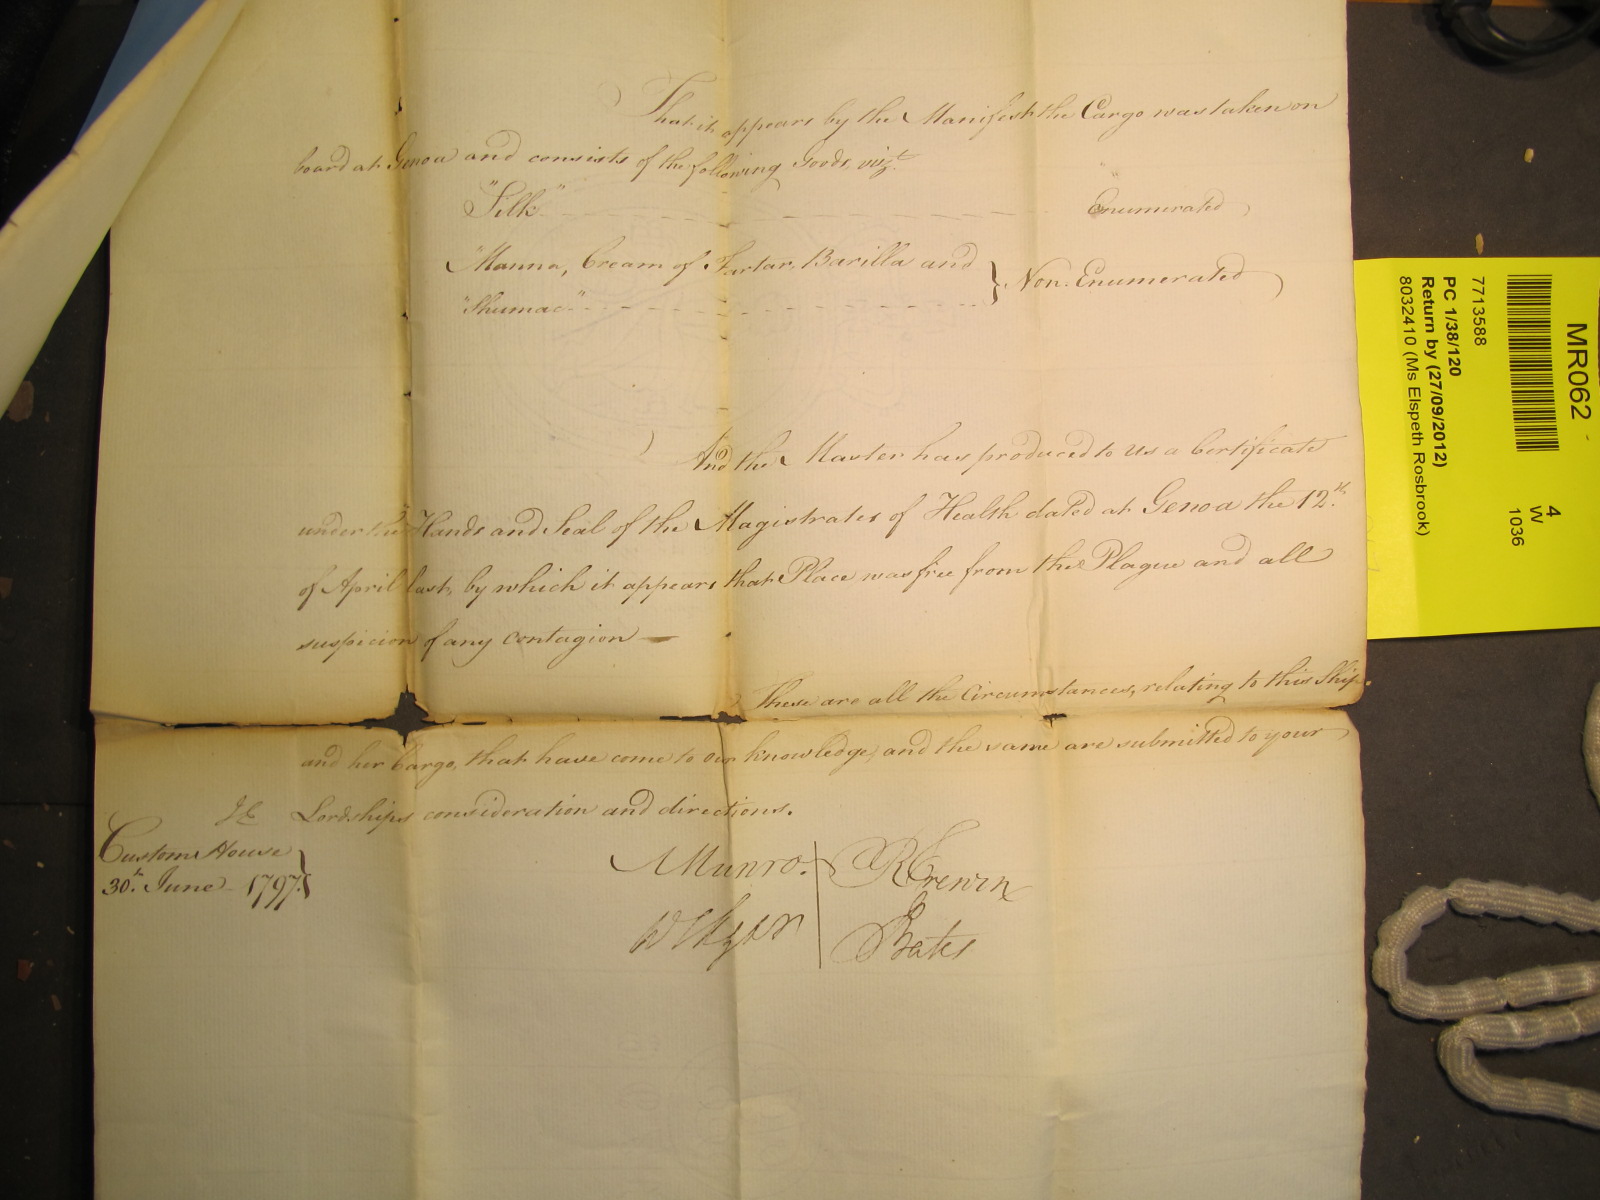 That it appears by the Manifest the Cargo was taken on
board at Genoa and consists of the following Goods, vizt.
"Silk" Enumerated
"Manna, Cream of Tartar, Barilla and
"Shumac" } Non-Enumerated
And the Master has produced to us a Certificate
under the Hands and Seal of the Magistrates of Health dated at Genoa the 12th.
of April last, by which it appears that Place was free from the Plague and all
suspicion of any contagion —
These are all the Circumstances, relating to this Ship
and her Cargo, that have come to our knowledge, and the same are submitted to your
Lordships consideration and directions.
Custom House }
30th. June 1797. }
Munro.
Bates
MR062
4
W
1036
7713588
PC 1/38/120
Return by (27/09/2012)
8032410 (Ms Elspeth Rosbrook)